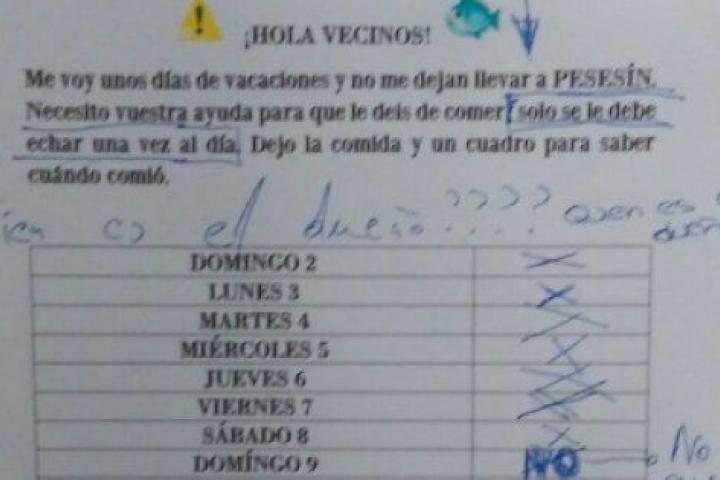 ¡HOLA VECINOS!
Me voy unos días de vacaciones y no me dejan llevar a PESESÍN.
Necesito vuestra ayuda para que le deis de comer, solo se le debe
echar una vez al día. Dejo la comida y un cuadro para saber
cuándo comió.
es el dueño????
DOMINGO 2 X
LUNES 3 X
MARTES 4 X
MIÉRCOLES 5 X
JUEVES 6 X
VIERNES 7 X
SÁBADO 8 X
DOMÍNGO 9 NO No